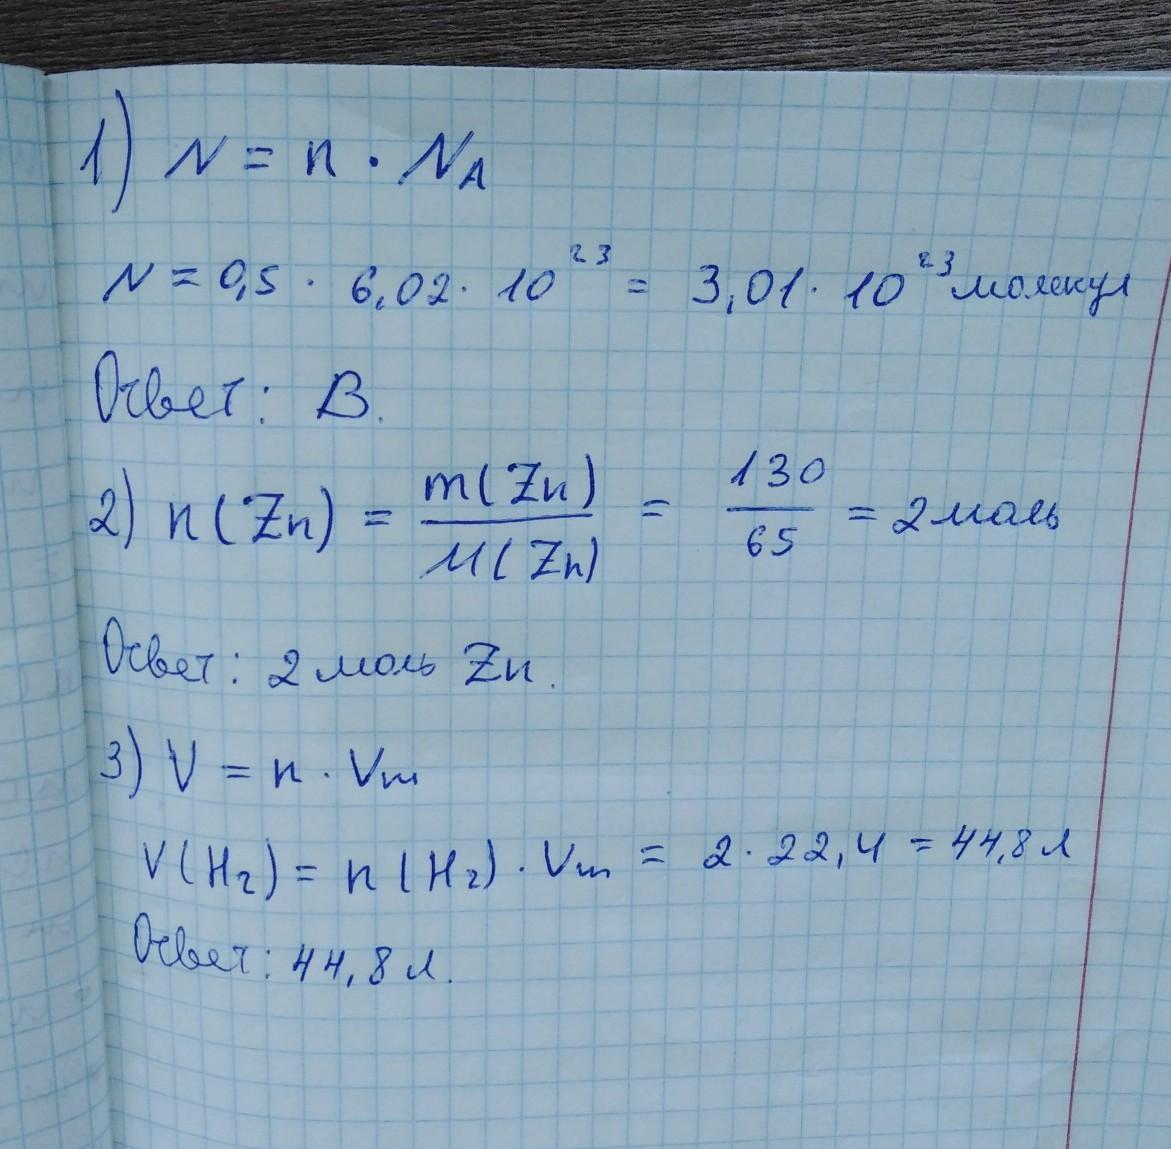 1) N = n · NA
N = 0,5 · 6,02 · 10²³ = 3,01 · 10²³ молекул
Ответ: В.
2) n(Zn) = m(Zn) / M(Zn) = 130 / 65 = 2 моль
Ответ: 2 моль Zn.
3) V = n · Vm
V(H₂) = n(H₂) · Vm = 2 · 22,4 = 44,8 л
Ответ: 44,8 л.